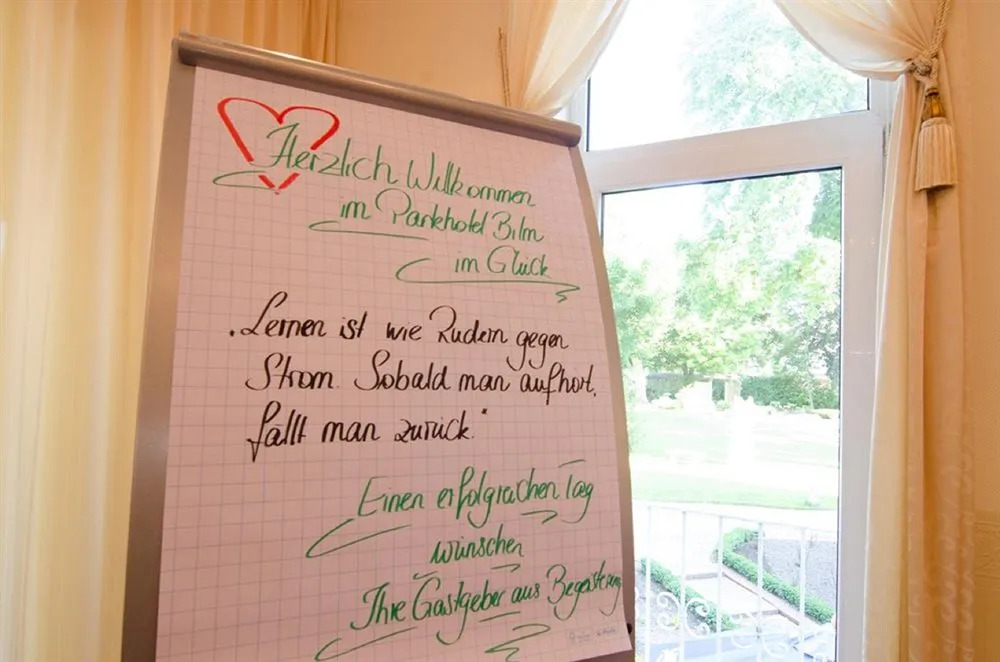 Herzlich Willkommen
im Parkhotel Bilm
im Glück
„Lernen ist wie Rudern gegen
Strom. Sobald man aufhört,
fällt man zurück."
Einen erfolgreichen Tag
wünschen
Ihre Gastgeber aus Begeisterung